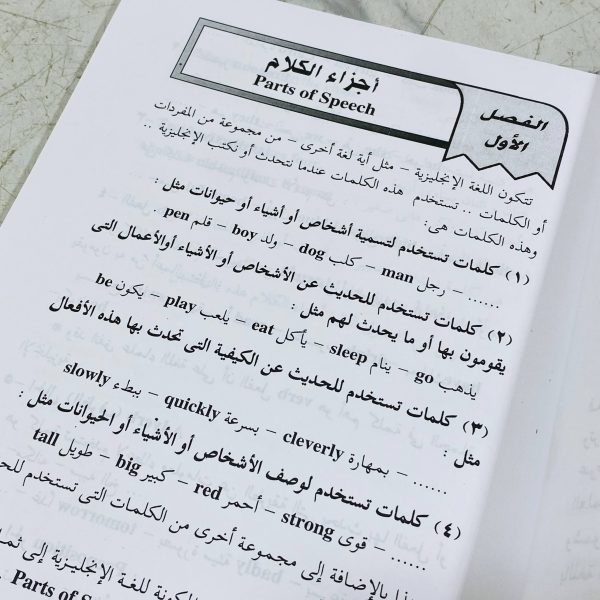 الفصل
الأول
أجزاء الكلام
Parts of Speech
تتكون اللغة الإنجليزية – مثل أية لغة أخرى – من مجموعة من المفردات
أو الكلمات .. تستخدم هذه الكلمات عندما نتحدث أو نكتب الإنجليزية ..
وهذه الكلمات هى:
(١) كلمات تستخدم لتسمية أشخاص أو أشياء أو حيوانات مثل :
...... – رجل man – كلب dog – ولد boy – قلم pen .
(٢) كلمات تستخدم للحديث عن الأشخاص أو الأشياء أوالأعمال التى
يقومون بها أو ما يحدث لهم مثل :
يذهب go – ينام sleep – يأكل eat – يلعب play – يكون be
(٣) كلمات تستخدم للحديث عن الكيفية التى تحدث بها هذه الأفعال
مثل :
...... – بمهارة cleverly – بسرعة quickly – ببطء slowly
(٤) كلمات تستخدم لوصف الأشخاص أو الأشياء أو الحيوانات مثل :
...... – قوى strong – أحمر red – كبير big – طويل tall
بالإضافة إلى مجموعة أخرى من الكلمات التى تستخدم
للغة الإنجليزية إلى
Parts of Speech